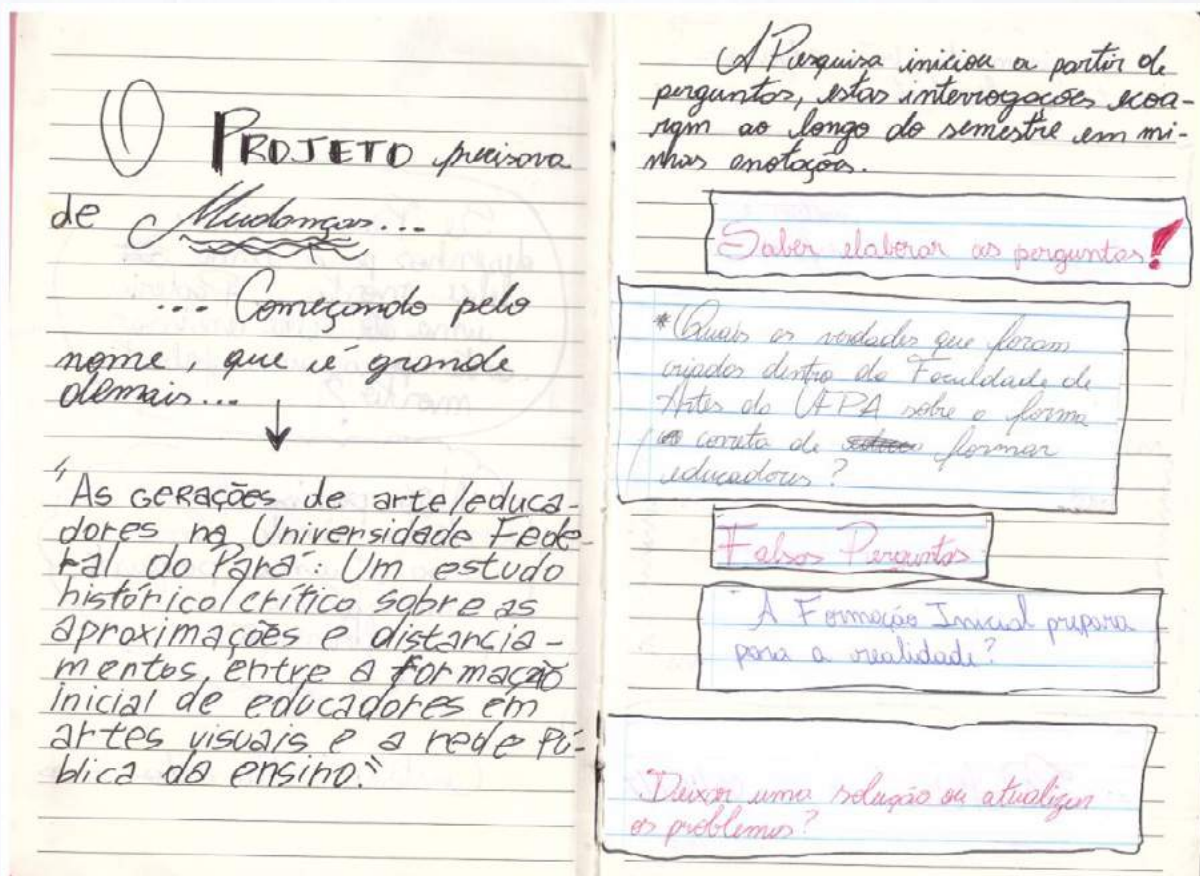 O PROJETO precisava
de Mudanças...
... Começando pelo
nome, que é grande
demais...
"As gerações de arte/educa-
dores na Universidade Fede-
ral do Pará: Um estudo
histórico/crítico sobre as
aproximações e distancia-
mentos, entre a formação
inicial de educadores em
artes visuais e a rede Pú-
blica da ensino."
A Pesquisa iniciou a partir de
perguntas, estas interrogações ecoa-
ram ao longo do semestre em mi-
nhas anotações.
Saber elaborar as perguntas!
* Quais as verdades que foram
criadas dentro da Faculdade de
Artes da UFPA sobre a forma
correta de formar
educadores?
Falsas Perguntas
A Formação Inicial prepara
para a realidade?
Deixar uma solução ou atualizar
os problemas?